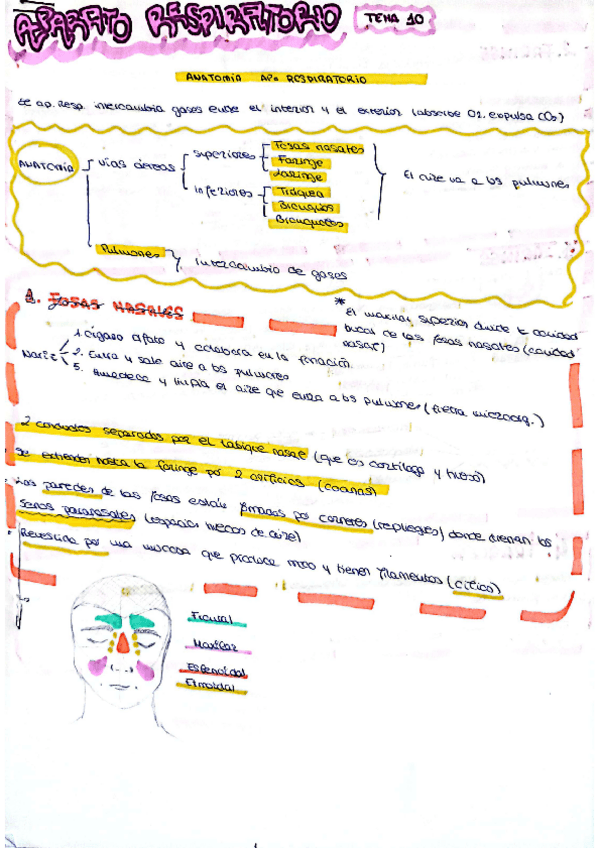 APARATO RESPIRATORIO TEMA 10
ANATOMÍA APº RESPIRATORIO
El ap. Resp. intercambia gases entre el interior y el exterior (absorbe O2, expulsa CO2)
ANATOMÍA
vías aéreas
superiores
Fosas nasales
Faringe
Laringe
inferiores
Tráquea
Bronquios
Bronquiolos
El aire va a los pulmones
Pulmones
Intercambio de gases
1. FOSAS NASALES
* El maxilar superior divide la cavidad
bucal de las fosas nasales (cavidad
nasal)
Nariz
1. Órgano olfato y colabora en la fonación.
2. Entra y sale aire a los pulmones
3. Humedece y limpia el aire que entra a los pulmones (filtra microorg.)
2 conductos separados por el tabique nasal (que es cartílago y hueso)
Se extienden hasta la faringe por 2 orificios (coanas)
Las paredes de las fosas están formadas por cornetes (repliegues) donde drenan los
senos paranasales (espacios huecos de aire)
Revestida por una mucosa que produce moco y tienen filamentos (cilios)
Frontal
Maxilar
Esfenoidal
Etmoidal